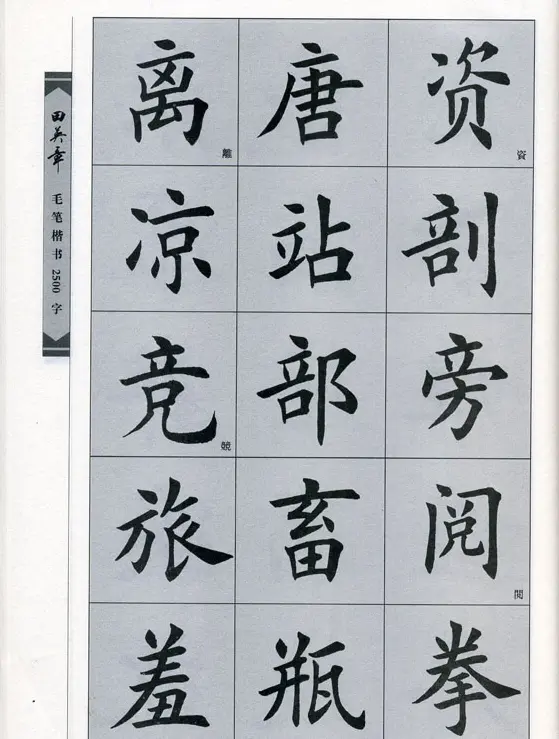 田英章 毛笔楷书2500字
资剖旁阅拳
資
閱
唐站部畜瓶
离凉竞旅羞
離
競